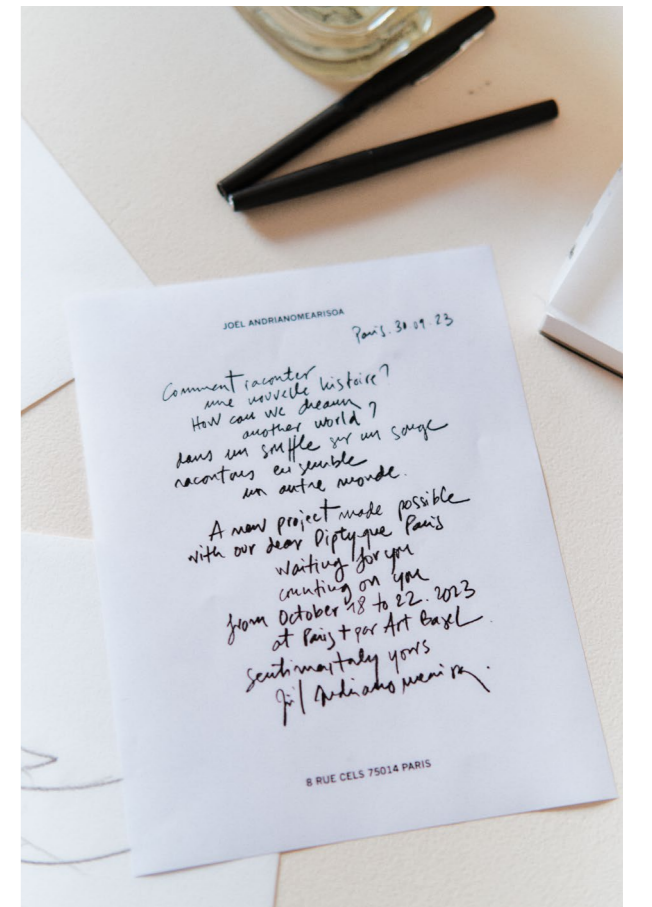 JOËL ANDRIANOMEARISOA
Paris. 30.09.23
Comment raconter
une nouvelle histoire?
How can we dream
another world?
dans un souffle sur un songe
racontons ensemble
un autre monde.
A new project made possible
with our dear Diptyque Paris
waiting for you
counting on you
from October 18 to 22. 2023
at Paris+ par Art Basel.
sentimentaly yours
Joël Andrianomearisoa.
8 RUE CELS 75014 PARIS